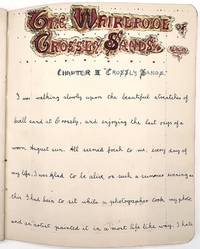 The Whirlpoole of
Crossly Sands.
Chapter II "Crossly Sands"
I was walking slowly upon the beautiful stretches of
sand at Crossly, and enjoying the last rays of a
warm August sun. All seemed fresh to me, every day of
my life, I was glad to be alive on such a summer evening as
this. I had been to sit while a photographer took my photo
and an artist painted it in a most life like way. I hate